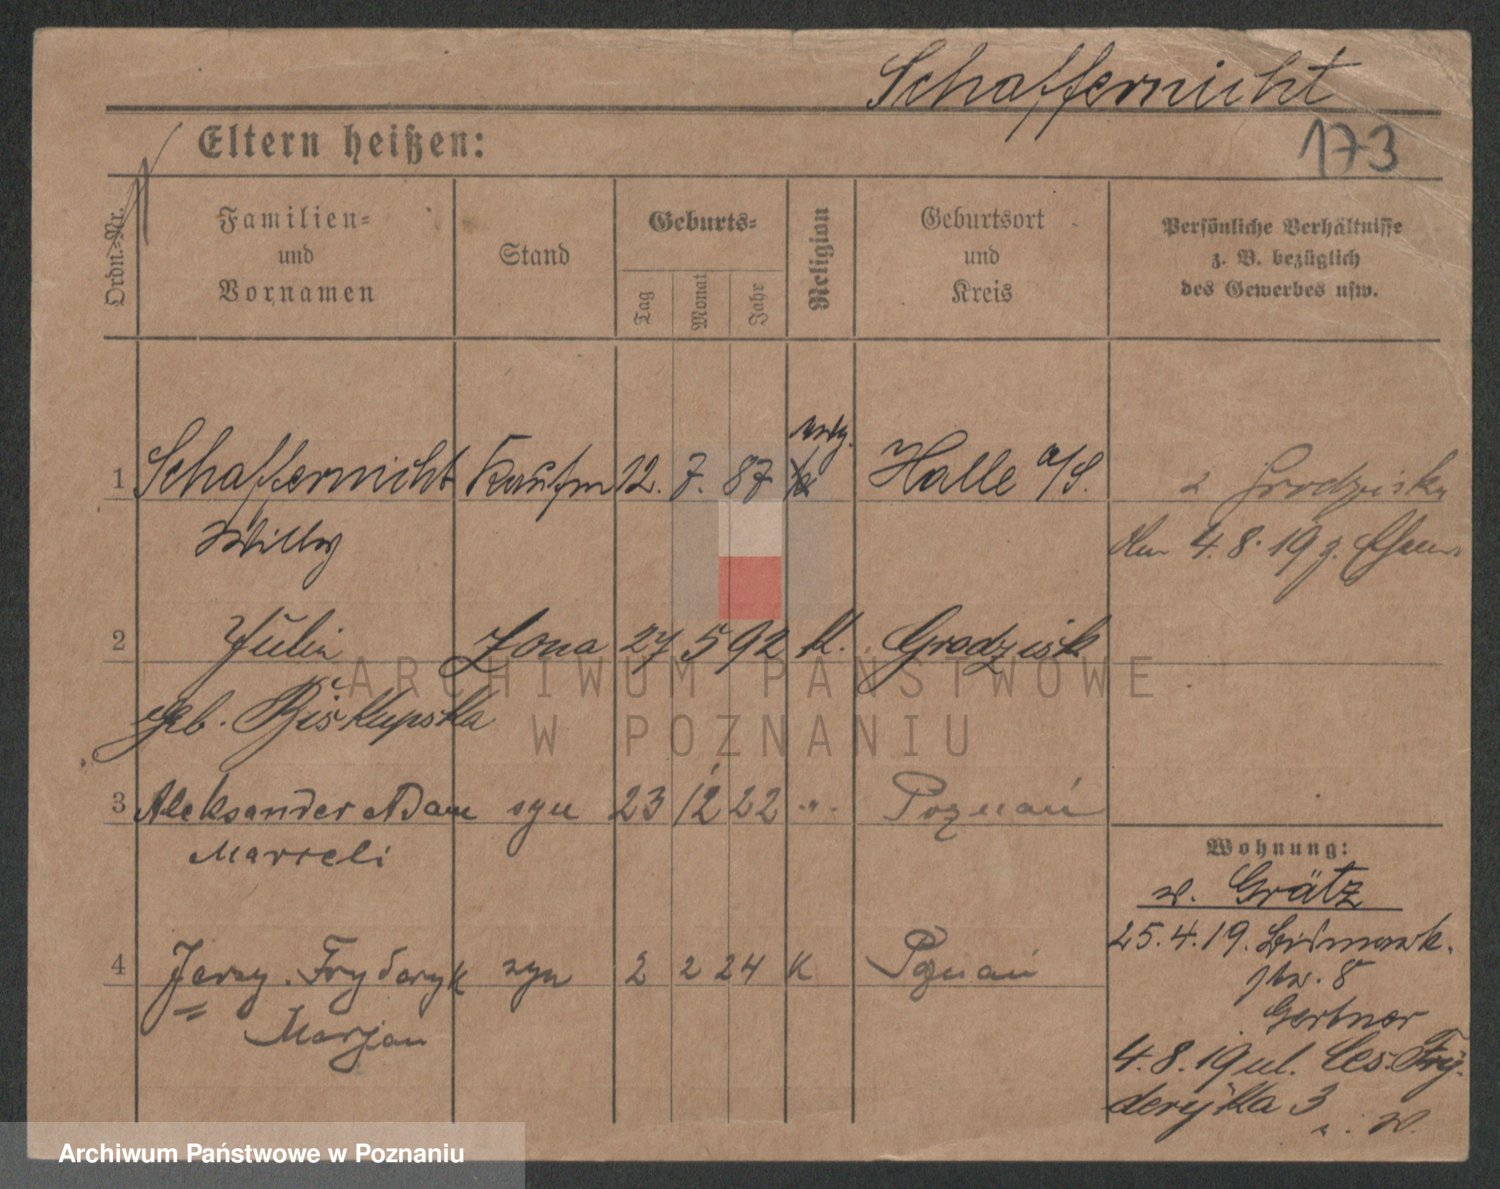 Schaffernicht
173
Eltern heißen:
Ordn.-Nr.
Familien-
und
Vornamen
Stand
Geburts-
Tag
Monat
Jahr
Religion
Geburtsort
und
Kreis
Persönliche Verhältnisse
z. B. bezüglich
des Gewerbes usw.
1 Schaffernicht Kaufm 12. 7. 87 Halle a/S.
Willy
z Grodziska
4. 8. 19
2 Julia Żona 27 5 92 K. Grodzisk
geb. Biskupska
3 Aleksander Adam syn 23 12 22 -"- Poznań
Marceli
4 Jerzy. Fryderyk syn 2 2 24 K Poznań
Marjan
Wohnung:
v. Grätz
25.4.19. Bismark.
str. 8
Gertner
4.8.19 ul. Ces. Fry-
deryka 3
ARCHIWUM PAŃSTWOWE
W POZNANIU
Archiwum Państwowe w Poznaniu